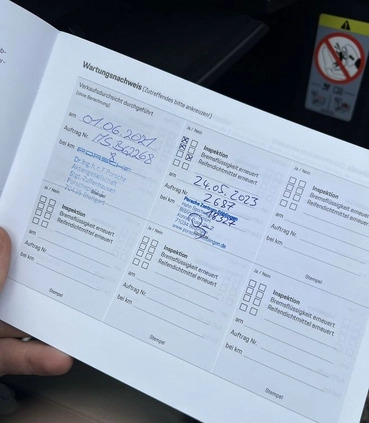 Wartungsnachweis (Zutreffendes bitte ankreuzen!)
Verkaufsdurchsicht durchgeführt
(ohne Berechnung)
am 01.06.2021
Auftrag Nr.
bei km 8
PORSCHE
Dr. Ing. h.c. F. Porsche
Aktiengesellschaft
Stempel
Ja / Nein
Inspektion
Bremsflüssigkeit erneuert
Reifendichtmittel erneuert
am 24.05.2023
Auftrag Nr. 2687
bei km
Porsche
Ja / Nein
Inspektion
Bremsflüssigkeit erneuert
Reifendichtmittel erneuert
am
Auftrag Nr.
bei km
Stempel
Ja / Nein
Inspektion
Bremsflüssigkeit erneuert
Reifendichtmittel erneuert
am
Auftrag Nr.
bei km
Stempel
Ja / Nein
Inspektion
Bremsflüssigkeit erneuert
Reifendichtmittel erneuert
am
Auftrag Nr.
bei km
Stempel
Ja / Nein
Inspektion
Bremsflüssigkeit erneuert
Reifendichtmittel erneuert
am
Auftrag Nr.
bei km
Stempel